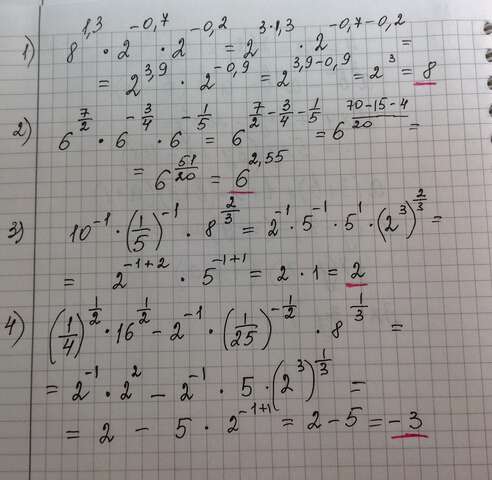 1) 8^{1,3} · 2^{-0,7} · 2^{-0,2} = 2^{3·1,3} · 2^{-0,7-0,2} =
= 2^{3,9} · 2^{-0,9} = 2^{3,9-0,9} = 2^3 = 8
2) 6^{7/2} · 6^{-3/4} · 6^{-1/5} = 6^{7/2-3/4-1/5} = 6^{(70-15-4)/20} =
= 6^{51/20} = 6^{2,55}
3) 10^{-1} · (1/5)^{-1} · 8^{2/3} = 2^{-1} · 5^{-1} · 5^1 · (2^3)^{2/3} =
= 2^{-1+2} · 5^{-1+1} = 2 · 1 = 2
4) (1/4)^{1/2} · 16^{1/2} - 2^{-1} · (1/25)^{-1/2} · 8^{1/3} =
= 2^{-1} · 2^2 - 2^{-1} · 5 · (2^3)^{1/3} =
= 2 - 5 · 2^{-1+1} = 2 - 5 = -3